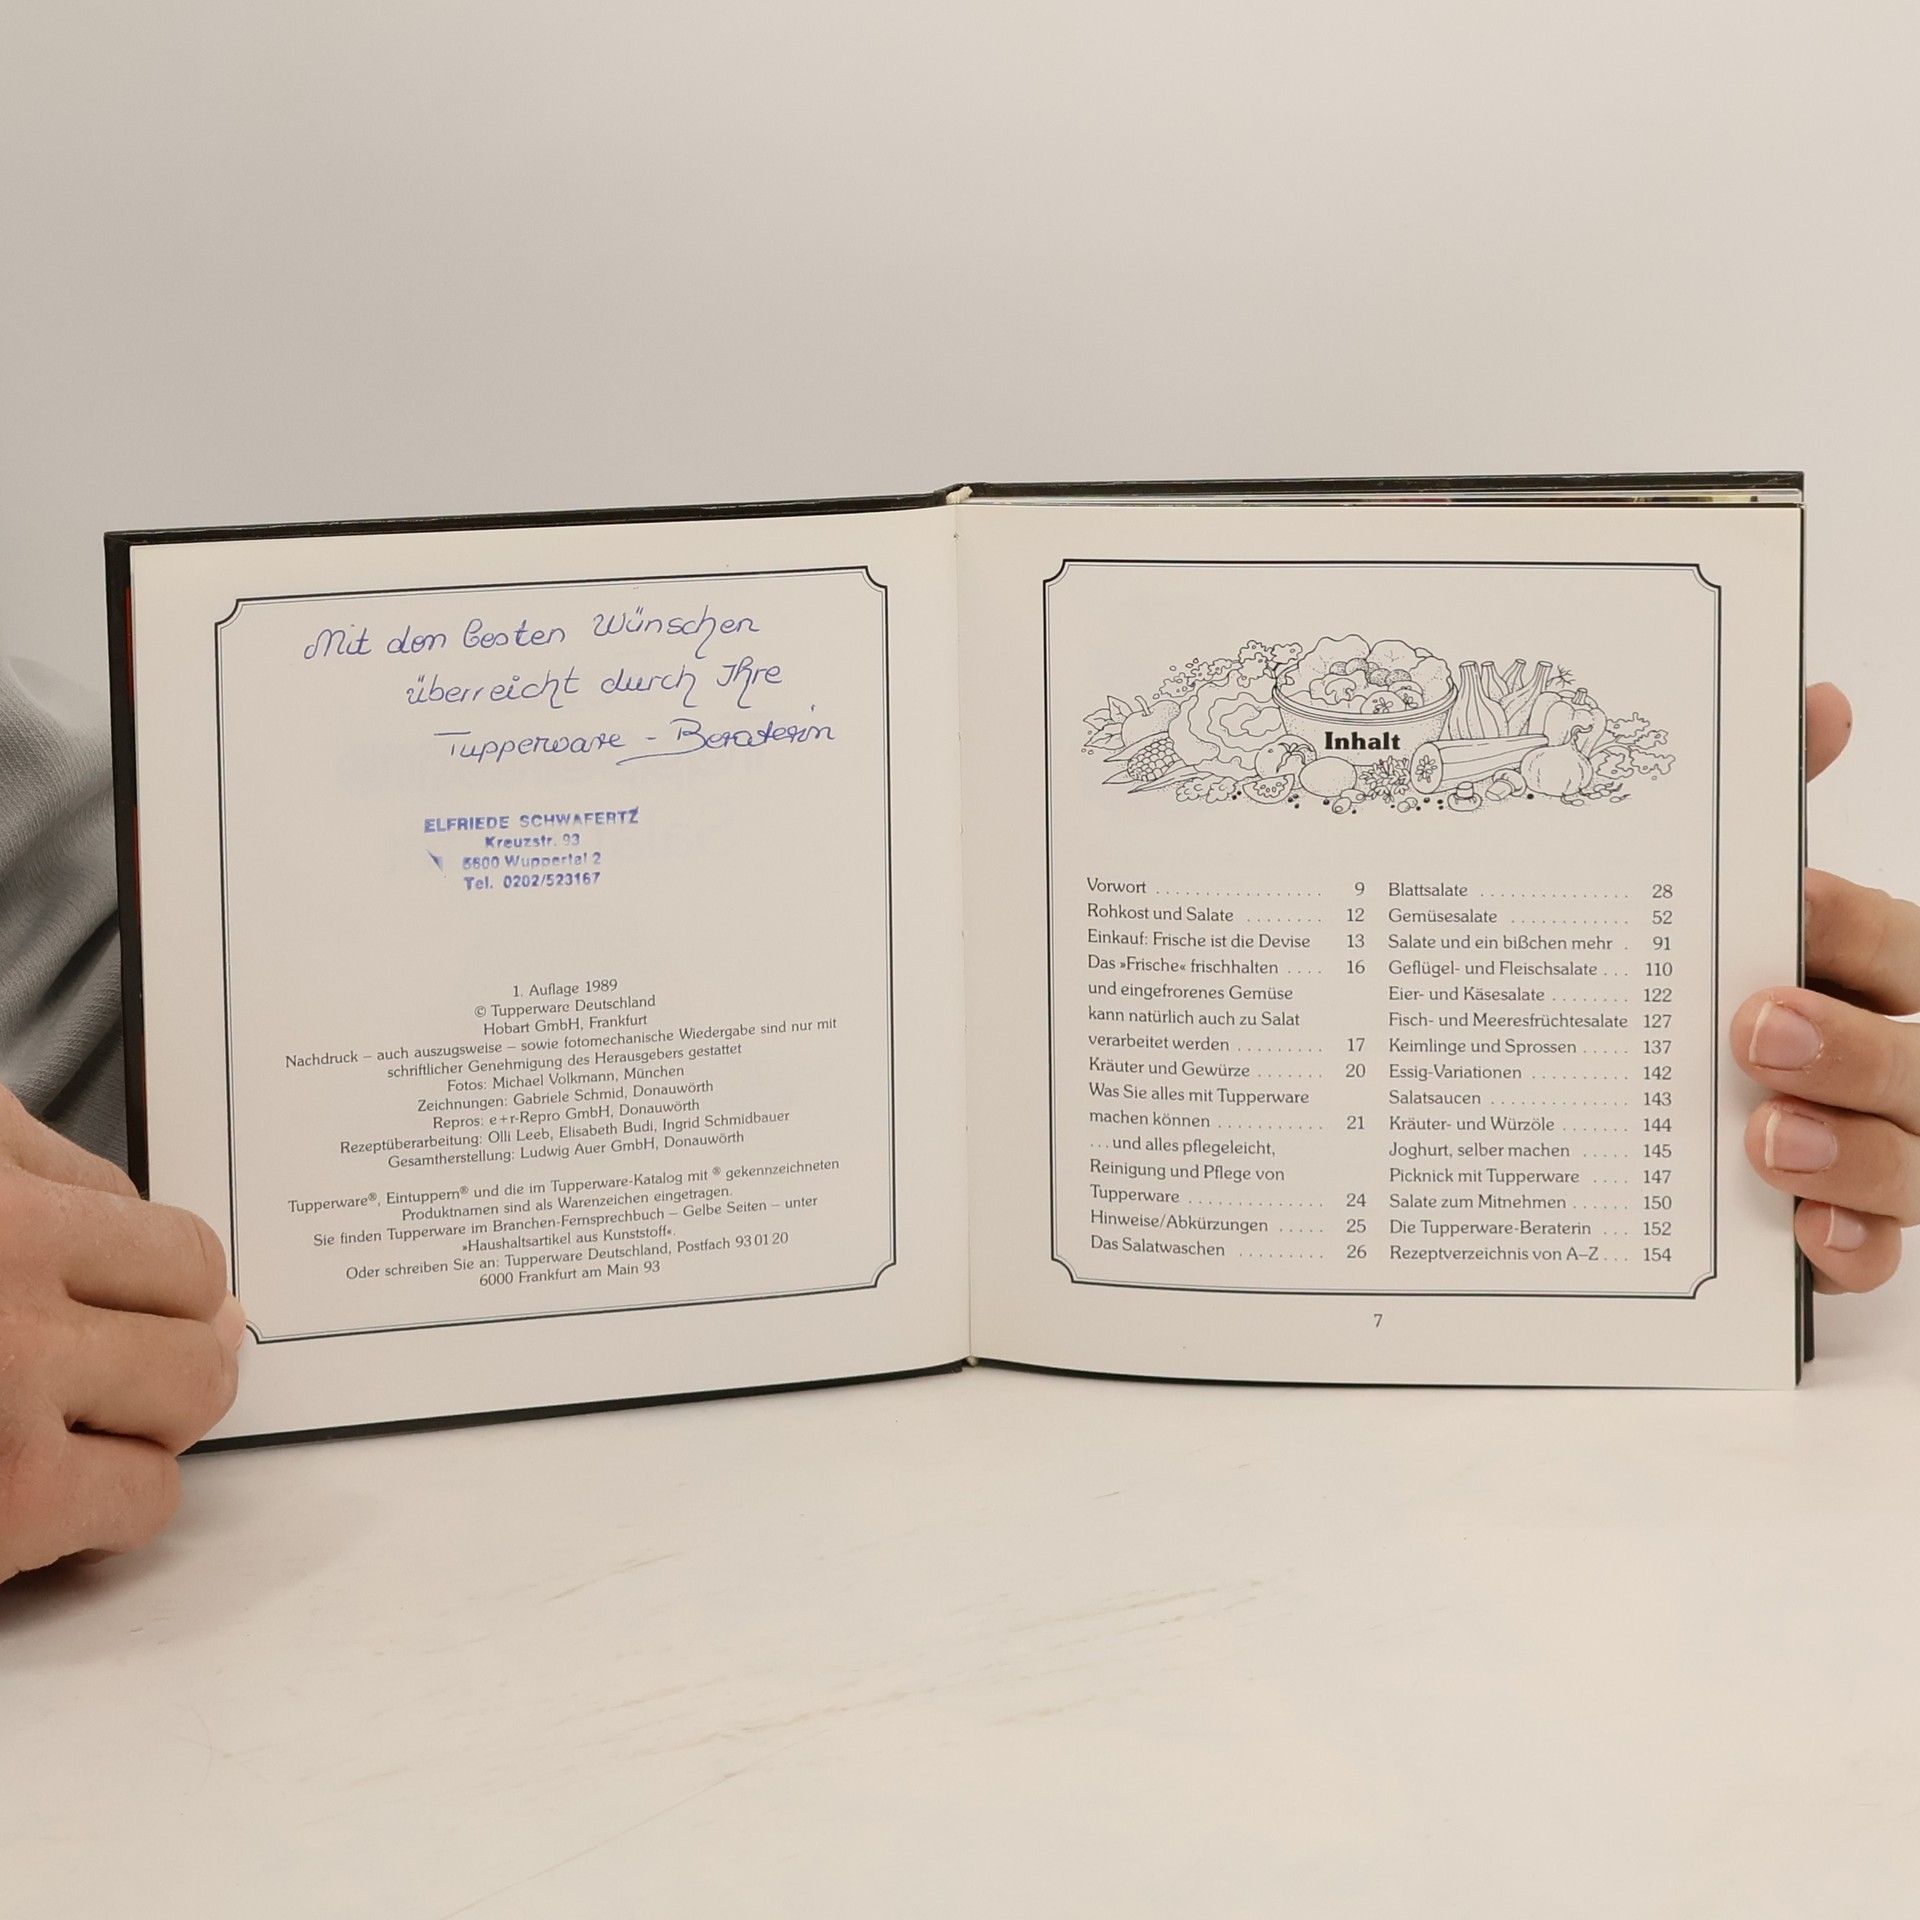 Mit den besten Wünschen
überreicht durch Ihre
Tupperware - Beraterin
ELFRIEDE SCHWAFERTZ
Kreuzstr. 93
5600 Wuppertal 2
Tel. 0202/523167
1. Auflage 1989
© Tupperware Deutschland
Hobart GmbH, Frankfurt
Nachdruck – auch auszugsweise – sowie fotomechanische Wiedergabe sind nur mit
schriftlicher Genehmigung des Herausgebers gestattet
Fotos: Michael Volkmann, München
Zeichnungen: Gabriele Schmid, Donauwörth
Repros: e+r-Repro GmbH, Donauwörth
Rezeptüberarbeitung: Olli Leeb, Elisabeth Budi, Ingrid Schmidbauer
Gesamtherstellung: Ludwig Auer GmbH, Donauwörth
Tupperware®, Eintuppern® und die im Tupperware-Katalog mit ® gekennzeichneten
Produktnamen sind als Warenzeichen eingetragen.
Sie finden Tupperware im Branchen-Fernsprechbuch – Gelbe Seiten – unter
»Haushaltsartikel aus Kunststoff«.
Oder schreiben Sie an: Tupperware Deutschland, Postfach 93 01 20
6000 Frankfurt am Main 93
Inhalt
Vorwort ................. 9
Rohkost und Salate ........ 12
Einkauf: Frische ist die Devise 13
Das »Frische« frischhalten .... 16
und eingefrorenes Gemüse
kann natürlich auch zu Salat
verarbeitet werden ......... 17
Kräuter und Gewürze ....... 20
Was Sie alles mit Tupperware
machen können ........... 21
...und alles pflegeleicht,
Reinigung und Pflege von
Tupperware .............. 24
Hinweise/Abkürzungen ..... 25
Das Salatwaschen ......... 26
Blattsalate ............... 28
Gemüsesalate ............ 52
Salate und ein bißchen mehr . 91
Geflügel- und Fleischsalate ... 110
Eier- und Käsesalate ........ 122
Fisch- und Meeresfrüchtesalate 127
Keimlinge und Sprossen ..... 137
Essig-Variationen .......... 142
Salatsaucen .............. 143
Kräuter- und Würzöle ....... 144
Joghurt, selber machen ..... 145
Picknick mit Tupperware .... 147
Salate zum Mitnehmen ...... 150
Die Tupperware-Beraterin ... 152
Rezeptverzeichnis von A–Z ... 154
7